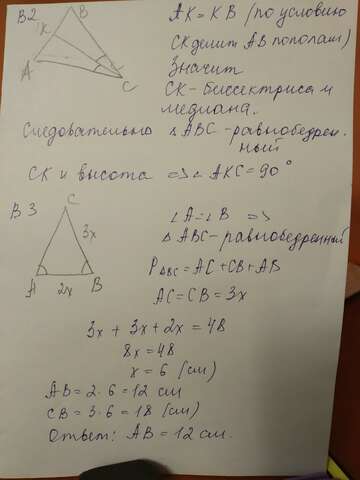 В2
B
K
A
C
AK = KB (по условию
CK делит AB пополам)
Значит
CK - биссектриса и
медиана.
Следовательно △ABC - равнобедрен-
ный
CK и высота => ∠AKC = 90°
В3
C
3x
A
2x
B
∠A = ∠B =>
△ABC - равнобедренный
P△ABC = AC + CB + AB
AC = CB = 3x
3x + 3x + 2x = 48
8x = 48
x = 6 (см)
AB = 2·6 = 12 см
CB = 3·6 = 18 (см)
Ответ: AB = 12 см.